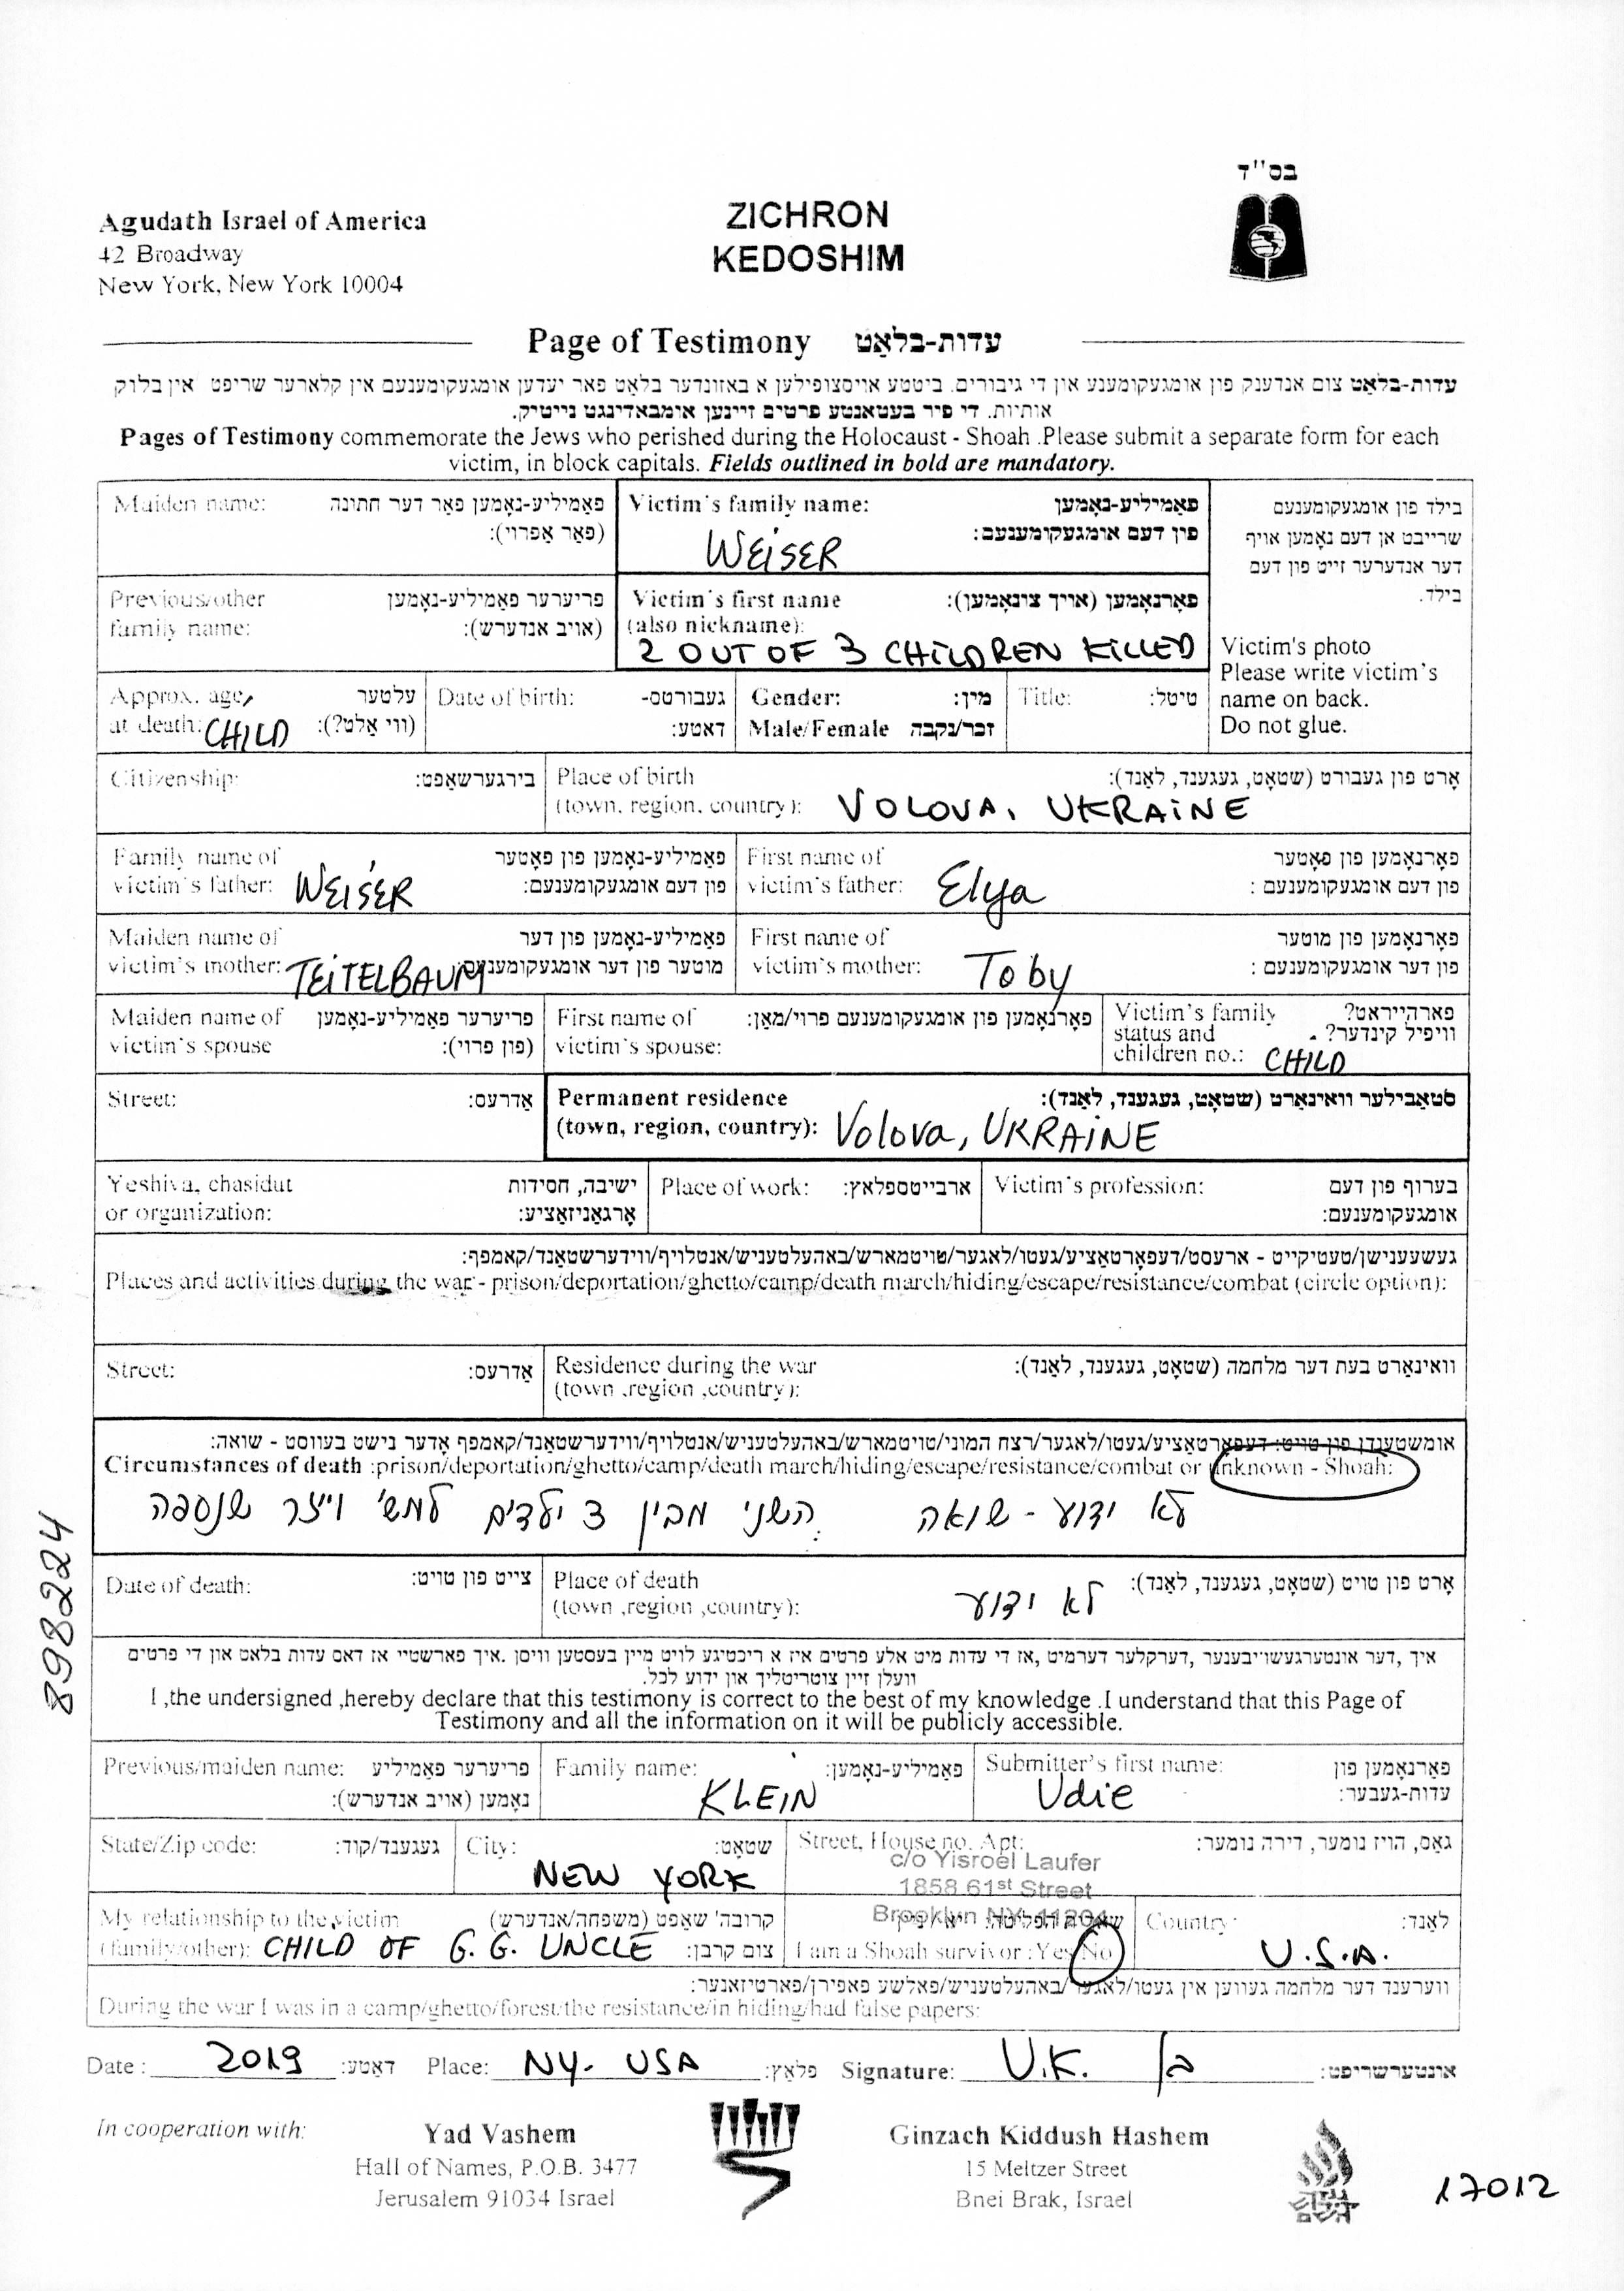 בס"ד
Agudath Israel of America
42 Broadway
New York, New York 10004
ZICHRON
KEDOSHIM
Page of Testimony עדות-בלאַט
עדות-בלאַט צום אנדענק פון אומגעקומענע און די גיבורים. ביטטע אויסצופילען א באזונדער בלאַט פאר יעדען אומגעקומענעם אין קלארער שריפט אין בלוק
אותיות. די פיר בעטאנטע פרטים זיינען אימבאדינגט נייטיק.
Pages of Testimony commemorate the Jews who perished during the Holocaust - Shoah .Please submit a separate form for each
victim, in block capitals. Fields outlined in bold are mandatory.
Maiden name: פאַמיליע-נאָמען פאר דער חתונה
(פאַר אַפרוי):
Victim's family name: פאַמיליע-נאָמען
פון דעם אומגעקומענעם:
WEISER
בילד פון אומגעקומענעם
שרייבט אן דעם נאָמען אויף
דער אנדערער זייט פון דעם
בילד.
Victim's photo
Please write victim's
name on back.
Do not glue.
Previous/other פריערער פאַמיליע-נאָמען
family name: (אויב אנדערש):
Victim's first name פאָרנאָמען (אויך צונאָמען):
(also nickname):
2 OUT OF 3 CHILDREN KILLED
Approx. age עלטער
at death: CHILD (ווי אַלט?):
Date of birth: געבורטס-
דאטע:
Gender: מין:
Male/Female זכר/נקבה
Title: טיטל:
Citizenship: בירגערשאַפט:
Place of birth אָרט פון געבורט (שטאָט, געגענד, לאַנד):
(town, region, country): VOLOVA, UKRAINE
Family name of פאַמיליע-נאָמען פון פאָטער
victim's father: WEISER פון דעם אומגעקומענעם:
First name of פאָרנאָמען פון פאָטער
victim's father: Elya פון דעם אומגעקומענעם :
Maiden name of פאַמיליע-נאָמען פון דער
victim's mother: TEITELBAUM מוטער פון דער אומגעקומענעם:
First name of פאָרנאָמען פון מוטער
victim's mother: Toby פון דער אומגעקומענעם :
Maiden name of פריערער פאַמיליע-נאָמען
victim's spouse (פון פרוי):
First name of פאָרנאָמען פון אומגעקומענעם פרוי/מאַן:
victim's spouse:
Victim's family פארהייראט?
status and וויפיל קינדער?
children no.: CHILD
Street: אַדרעס:
Permanent residence סטאַבילער וואוינאָרט (שטאָט, געגענד, לאַנד):
(town, region, country): Volova, UKRAINE
Yeshiva, chasidut ישיבה, חסידות
or organization: אָרגאַניזאַציע:
Place of work: ארבייטספלאץ:
Victim's profession: בערוף פון דעם
אומגעקומענעם:
געשעענישן/טעטיקייט - ארעסט/דעפּאָרטאַציע/געטו/לאגער/טויטמארש/באהעלטעניש/אנטלויף/ווידערשטאַנד/קאמפף:
Places and activities during the war - prison/deportation/ghetto/camp/death march/hiding/escape/resistance/combat (circle option):
Street: אַדרעס:
Residence during the war וואוינאָרט בעת דער מלחמה (שטאָט, געגענד, לאַנד):
(town ,region ,country):
אומשטענדן פון טויט: דעפּאָרטאַציע/געטו/לאגער/רצח המוני/טויטמארש/באהעלטעניש/אנטלויף/ווידערשטאַנד/קאמפף אָדער נישט בעוואוסט - שואה:
Circumstances of death :prison/deportation/ghetto/camp/death march/hiding/escape/resistance/combat or unknown - Shoah:
לא ידוע - שואה השני מבין 3 ילדים למש' וייזר שנספה
Date of death: צייט פון טויט:
Place of death אָרט פון טויט (שטאָט, געגענד, לאַנד):
(town ,region ,country): לא ידוע
איך ,דער אונטערגעשרייבענער ,דערקלער דערמיט ,אז די עדות מיט אלע פרטים איז א ריכטיגע לויט מיין בעסטען וויסן .איך פארשטיי אז דאס עדות בלאט און די פרטים
וועלן זיין צוטריטליך און ידוע לכל.
I ,the undersigned ,hereby declare that this testimony is correct to the best of my knowledge .I understand that this Page of
Testimony and all the information on it will be publicly accessible.
Previous/maiden name: פריערער פאַמיליע
נאָמען (אויב אנדערש):
Family name: פאַמיליע-נאָמען:
KLEIN
Submitter's first name: פאָרנאָמען פון
Udie עדות-געבער:
State/Zip code: געגענד/קוד:
City: שטאָט:
NEW YORK
Street, House no. Apt: גאַס, הויז נומער, דירה נומער:
c/o Yisroel Laufer
1858 61st Street
Brooklyn NY. 11204
My relationship to the victim קרובה' שאָפט (משפחה/אנדערש)
(family/other): CHILD OF G.G. UNCLE צום קרבן:
I am a Shoah survivor : Yes/No
Country: לאַנד:
U.S.A.
ווערענד דער מלחמה געווען אין געטו/לאגער/באהעלטעניש/פאלשע פאפירן/פארטיזאנער:
During the war I was in a camp/ghetto/forest/the resistance/in hiding/had false papers:
Date : 2019 דאַטע: Place: NY. USA פלאַץ: Signature: U.K. אונטערשריפט:
In cooperation with:
Yad Vashem
Hall of Names, P.O.B. 3477
Jerusalem 91034 Israel
Ginzach Kiddush Hashem
15 Meltzer Street
Bnei Brak, Israel
17012
898224